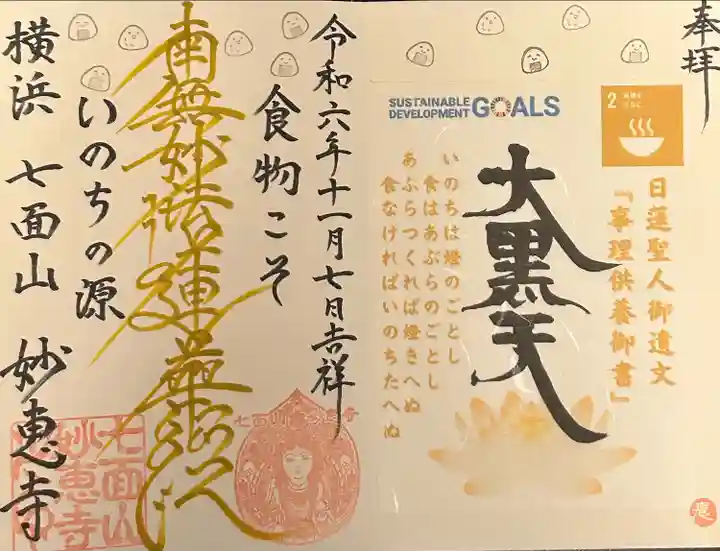 奉拝
2 飢餓を
ゼロに
SUSTAINABLE
DEVELOPMENT GOALS
日蓮聖人御遺文
「事理供養御書」
大黒天
いのちは燈のごとし
食はあぶらのごとし
あぶらつくれば燈きへぬ
食なければいのちたへぬ
令和六年十一月七日吉祥
食物こそ
南無妙法蓮華経
いのちの源
横浜 七面山 妙恵寺
七面山
妙恵寺